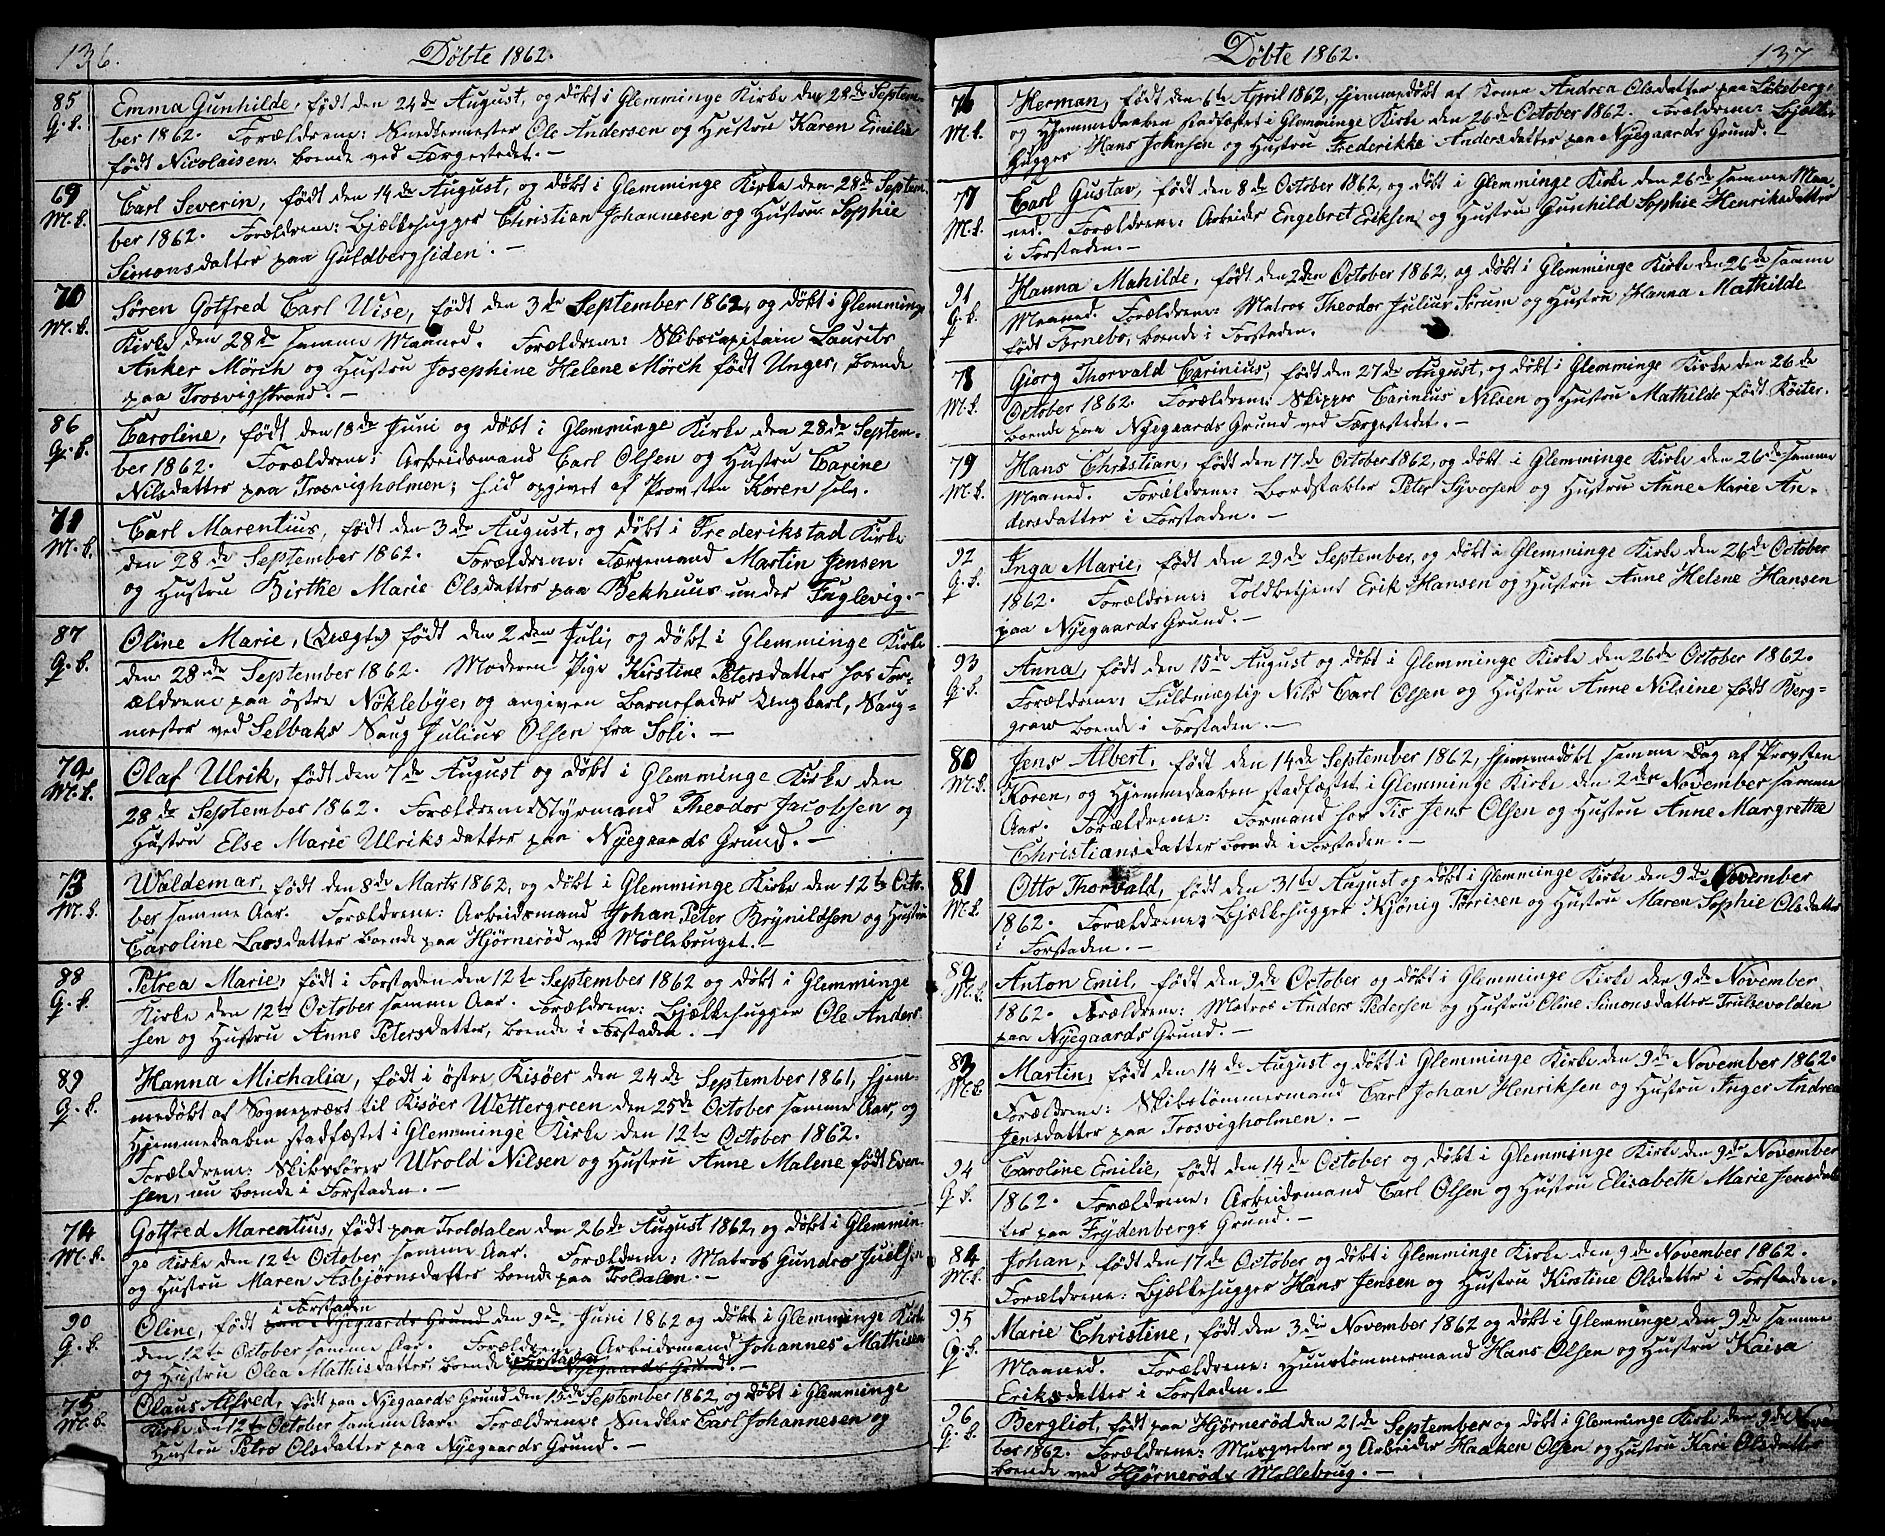 136.
Døbte 1862.
85
G. b.
Emma Gunhilde, født den 24de August, og døbt i Glemminge Kirke den 28de Septem-
ber 1862. Forældrene: Snedkermester Ole Andersen og Hustru Karen Emilie
født Nicolaisen, boende ved Færgestedet. —
69
M. b.
Carl Severin, født den 14de August, og døbt i Glemminge Kirke den 28de Septem-
ber 1862. Forældrene: Bjælkehugger Christian Johannesen og Hustru Sophie
Simonsdatter paa Guldbergsiden. —
70
M. b.
Søren Gotfred Carl Wise, født den 3de September 1862, og døbt i Glemminge
Kirke den 28de samme Maaned. Forældrene: Skibscapitain Laurits
Anker Mörch og Hustru Josephine Helene Mörch født Unger, boende
paa Trosvigstrand. —
86
G. b.
Caroline, født den 18de Juni og døbt i Glemminge Kirke den 28de Septem-
ber 1862. Forældrene: Arbeidsmand Carl Olsen og Hustru Carine
Nilsdatter paa Trosvigholmen; hid opgivet af Provsten Koren selv.
71
M. b.
Carl Marentius, født den 3de August, og døbt i Frederikstad Kirke
den 28de September 1862. Forældrene: Færgemand Martin Jensen
og Hustru Birthe Marie Olsdatter paa Bekhuus under Fuglevig. —
87
G. b.
Oline Marie, (Uægte) født den 2den Juli, og døbt i Glemminge Kirke
den 28de September 1862. Moderen Pige Kirstine Petersdatter hos For-
ældrene paa østre Nöklebye, og angiven Barnefader Ungkarl, Saug-
mester ved Selbaks Saug Julius Olsen fra Soli. —
72
M. b.
Olaf Ulrik, født den 7de August og døbt i Glemminge Kirke den
28de September 1862. Forældrene: Styrmand Theodor Jacobsen og
Hustru Else Marie Ulriksdatter paa Nyegaards Grund. —
73
M. b.
Waldemar, født den 8de Marts 1862, og døbt i Glemminge Kirke den 12te Octo-
ber samme Aar. Forældrene: Arbeidsmand Johan Peter Brynildsen og Hustru
Caroline Larsdatter boende paa Hjørnerød ved Møllebruget. —
88
G. b.
Petrea Marie, født i Forstaden den 12te September 1862 og døbt i Glemminge
Kirke den 12te October samme Aar. Forældrene: Bjælkehugger Ole Ander-
sen og Hustru Anne Petersdatter, boende i Forstaden. —
89
G. b.
Hanna Michalia, født i østre Risøer den 24de September 1861, hjem-
medøbt af Sogneprest til Risøer Wettergreen den 25de October samme Aar, og
Hjemmedaaben stadfæstet i Glemminge Kirke den 12te October 1862.
Forældrene: Skibsfører Urold Nilsen og Hustru Anne Malene født Even-
sen, nu boende i Forstaden. —
74
M. b.
Gotfred Marentius, født paa Troldalen den 26de August 1862, og døbt i Glemmin-
ge Kirke den 12te October samme Aar. Forældrene: Matros Gundro Juelsen
og Hustru Maren Asbjørnsdatter boende paa Troldalen. —
90
G. b.
i Forstaden
Oline, født paa Nyegaards Grund den 9de Juni 1862 og døbt i Glemminge Kirke
den 12te October samme Aar. Forældrene: Arbeidsmand Johannes Mathisen
og Hustru Olea Mathisdatter, boende i Forstaden paa Nyegaards Grund. —
75
M. b.
Olaus Alfred, født paa Nyegaards Grund den 15de September 1862, og døbt i Glemminge
Kirke den 12te October samme Aar. Forældrene: Snedker Carl Johannesen og
Hustru Petro Olsdatter paa Nyegaards Grund. —
Døbte 1862.
137
76
M. b.
Herman, født den 6te April 1862, hjemmedøbt af Konen Andrea Olsdatter paa Lekeberg,
og Hjemmedaaben stadfæstet i Glemminge Kirke den 26de October 1862. Forældrene: Bjælke-
hugger Hans Johnsen og Hustru Frederikke Andersdatter paa Nyegaards Grund.
77
M. b.
Carl Gustav, født den 8de October 1862, og døbt i Glemminge Kirke den 26de samme Maa-
ned. Forældrene: Arbeider Engebret Eriksen og Hustru Gunhild Sophie Henriksdatter
i Forstaden. —
91
G. b.
Hanna Mahilde, født den 2den October 1862, og døbt i Glemminge Kirke den 26de samme
Maaned. Forældrene: Matros Theodor Julius Strum og Hustru Hanna Mathilde
født Fornebo, boende i Forstaden.
78
M. b.
Giorg Thorvald Carinius, født den 27de August, og døbt i Glemminge Kirke den 26de
October 1862. Forældrene: Skipper Carinius Nilsen og Hustru Mathilde født Köster-
boende paa Nyegaards Grund ved Færgestedet. —
79
M. b.
Hans Christian, født den 17de October 1862, og døbt i Glemminge Kirke den 26de samme
Maaned. Forældrene: Bordstabler Peter Syversen og Hustru Anne Marie An-
dersdatter i Forstaden. —
92
G. b.
Inga Marie, født den 29de September, og døbt i Glemminge Kirke den 26de October
1862. Forældrene: Toldbetjent Erik Hansen og Hustru Anne Helene Hansen
paa Nyegaards Grund. —
93
G. b.
Anna, født den 15de August og døbt i Glemminge Kirke den 26de October 1862.
Forældrene: Fuldmægtig Nils Carl Olsen og Hustru Anne Nilsine født Berg-
graw boende i Forstaden. —
80
M. b.
Jens Albert, født den 14de September 1862, hjemmedøbt samme Dag af Provsten
Koren, og Hjemmedaaben stadfæstet i Glemminge Kirke den 2den November samme
Aar. Forældrene: Formand hos Tis Jens Olsen og Hustru Anne Margrethe
Christiansdatter boende i Forstaden. —
81
M. b.
Otto Thorvald, født den 31te August og døbt i Glemminge Kirke den 9de November
1862. Forældrene: Bjælkehugger Kjönig Torrisen og Hustru Maren Sophie Olsdatter
i Forstaden. —
82
M. b.
Anton Emil, født den 9de October og døbt i Glemminge Kirke den 9de November
1862. Forældrene: Matros Anders Pedersen og Hustru Oline Simonsdatter Trulsevolden
paa Nyegaards Grund. —
83
M. b.
Martin, født den 14de August og døbt i Glemminge Kirke den 9de November 1862.
Forældrene: Skibstömmermand Carl Johan Henriksen og Hustru Inger Andrea
Jensdatter paa Trosvigholmen. —
94
G. b.
Caroline Emilie, født den 14de October og døbt i Glemminge Kirke den 9de November
1862. Forældrene: Arbeidsmand Carl Olsen og Hustru Elisabeth Marie Jensdat-
ter paa Frydenbergs Grund. —
84
M. b.
Johan, født den 17de October og døbt i Glemminge Kirke den 9de November 1862.
Forældrene: Bjælkehugger Hans Jensen og Hustru Kirstine Olsdatter i Forstaden.
95
G. b.
Marie Christine, født den 3die November 1862 og døbt i Glemminge den 9de samme
Maaned. Forældrene: Huustömmermand Hans Olsen og Hustru Kaisa
Eriksdatter i Forstaden. —
96
G. b.
Bergliot, født paa Hjørnerød den 21de September og døbt i Glemminge Kirke den 9de Novem-
ber 1862. Forældrene: Murmester og Arbeider Haaken Olsen og Hustru Kari Olsdatter
boende ved Hjørnerøds Møllebrug. —